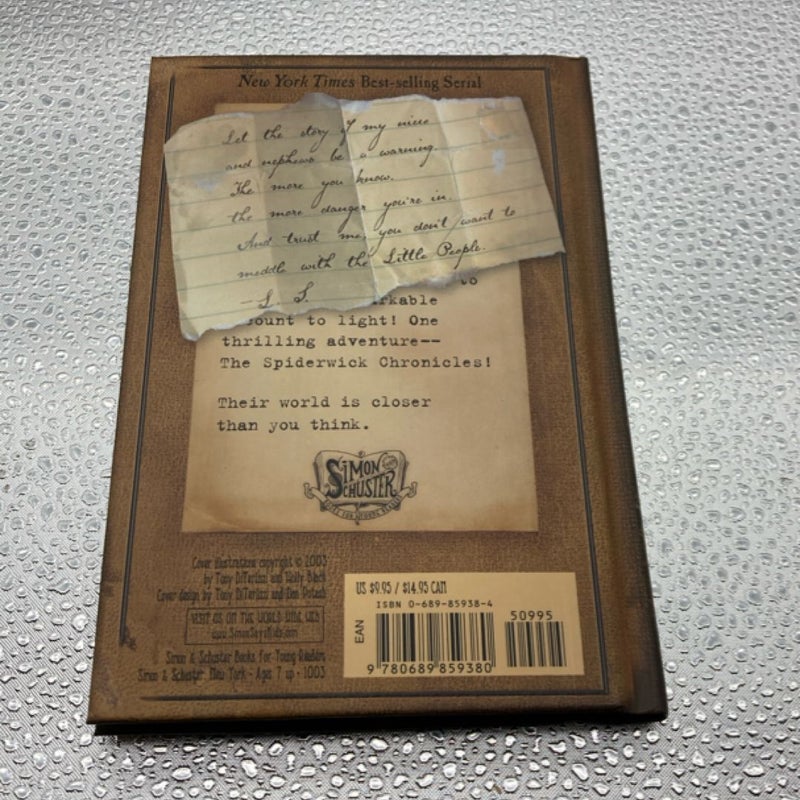 New York Times Best-selling Serial
Let the story of my niece
and nephews be a warning.
The more you know.
the more danger you're in.
And trust me, you don't want to
meddle with the Little People.
—L. S.
to
rkable
ount to light! One
thrilling adventure--
The Spiderwick Chronicles!
Their world is closer
than you think.
SIMON &
SCHUSTER
Cover illustrations copyright © 2003
by Tony DiTerlizzi and Holly Black
Cover design by Tony DiTerlizzi and Dan Potash
VISIT US ON THE WORLD WIDE WEB
www.SimonSaysKids.com
Simon & Schuster Books for Young Readers
Simon & Schuster, New York - Ages 7 up - 1003
US $9.95 / $14.95 CAN
ISBN 0-689-85938-4
50995
EAN
9 780689 859380